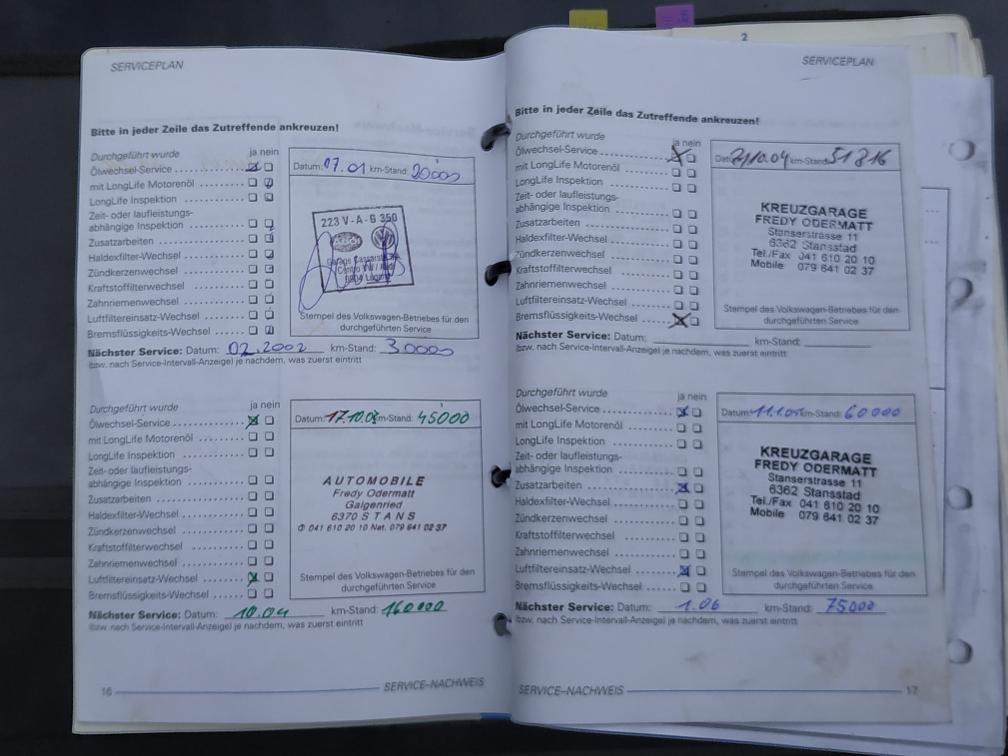 2
SERVICEPLAN
Bitte in jeder Zeile das Zutreffende ankreuzen!
Durchgeführt wurde ja nein
Ölwechsel-Service
mit LongLife Motorenöl
LongLife Inspektion
Zeit- oder laufleistungs-
abhängige Inspektion
Zusatzarbeiten
Haldexfilter-Wechsel
Zündkerzenwechsel
Kraftstoffilterwechsel
Zahnriemenwechsel
Luftfiltereinsatz-Wechsel
Bremsflüssigkeits-Wechsel
Datum: 07.01 km-Stand: 20'000
223 V-A-G 350
Stempel des Volkswagen-Betriebes für den
durchgeführten Service
Nächster Service: Datum: 02.2002 km-Stand: 30000
(bzw. nach Service-Intervall-Anzeige) je nachdem, was zuerst eintritt
Durchgeführt wurde ja nein
Ölwechsel-Service
mit LongLife Motorenöl
LongLife Inspektion
Zeit- oder laufleistungs-
abhängige Inspektion
Zusatzarbeiten
Haldexfilter-Wechsel
Zündkerzenwechsel
Kraftstoffilterwechsel
Zahnriemenwechsel
Luftfiltereinsatz-Wechsel
Bremsflüssigkeits-Wechsel
Datum: km-Stand: 45'000
AUTOMOBILE
Fredy Odermatt
Galgenried
6370 STANS
✆ 041 610 20 10 Nat. 079 641 02 37
Stempel des Volkswagen-Betriebes für den
durchgeführten Service
Nächster Service: Datum: 10.04 km-Stand: 160000
(bzw. nach Service-Intervall-Anzeige) je nachdem, was zuerst eintritt
16 SERVICE-NACHWEIS
SERVICEPLAN
Bitte in jeder Zeile das Zutreffende ankreuzen!
Durchgeführt wurde ja nein
Ölwechsel-Service
mit LongLife Motorenöl
LongLife Inspektion
Zeit- oder laufleistungs-
abhängige Inspektion
Zusatzarbeiten
Haldexfilter-Wechsel
Zündkerzenwechsel
Kraftstoffilterwechsel
Zahnriemenwechsel
Luftfiltereinsatz-Wechsel
Bremsflüssigkeits-Wechsel
km-Stand: 51816
KREUZGARAGE
FREDY ODERMATT
Stanserstrasse 11
6362 Stansstad
Tel./Fax 041 610 20 10
Mobile 079 641 02 37
Stempel des Volkswagen-Betriebes für den
durchgeführten Service
Nächster Service: Datum: km-Stand:
(bzw. nach Service-Intervall-Anzeige) je nachdem, was zuerst eintritt
Durchgeführt wurde ja nein
Ölwechsel-Service
mit LongLife Motorenöl
LongLife Inspektion
Zeit- oder laufleistungs-
abhängige Inspektion
Zusatzarbeiten
Haldexfilter-Wechsel
Zündkerzenwechsel
Kraftstoffilterwechsel
Zahnriemenwechsel
Luftfiltereinsatz-Wechsel
Bremsflüssigkeits-Wechsel
Datum: 11.1.05 km-Stand: 60000
KREUZGARAGE
FREDY ODERMATT
Stanserstrasse 11
6362 Stansstad
Tel./Fax 041 610 20 10
Mobile 079 641 02 37
Stempel des Volkswagen-Betriebes für den
durchgeführten Service
Nächster Service: Datum: 1.06 km-Stand: 75000
(bzw. nach Service-Intervall-Anzeige) je nachdem, was zuerst eintritt
SERVICE-NACHWEIS 17